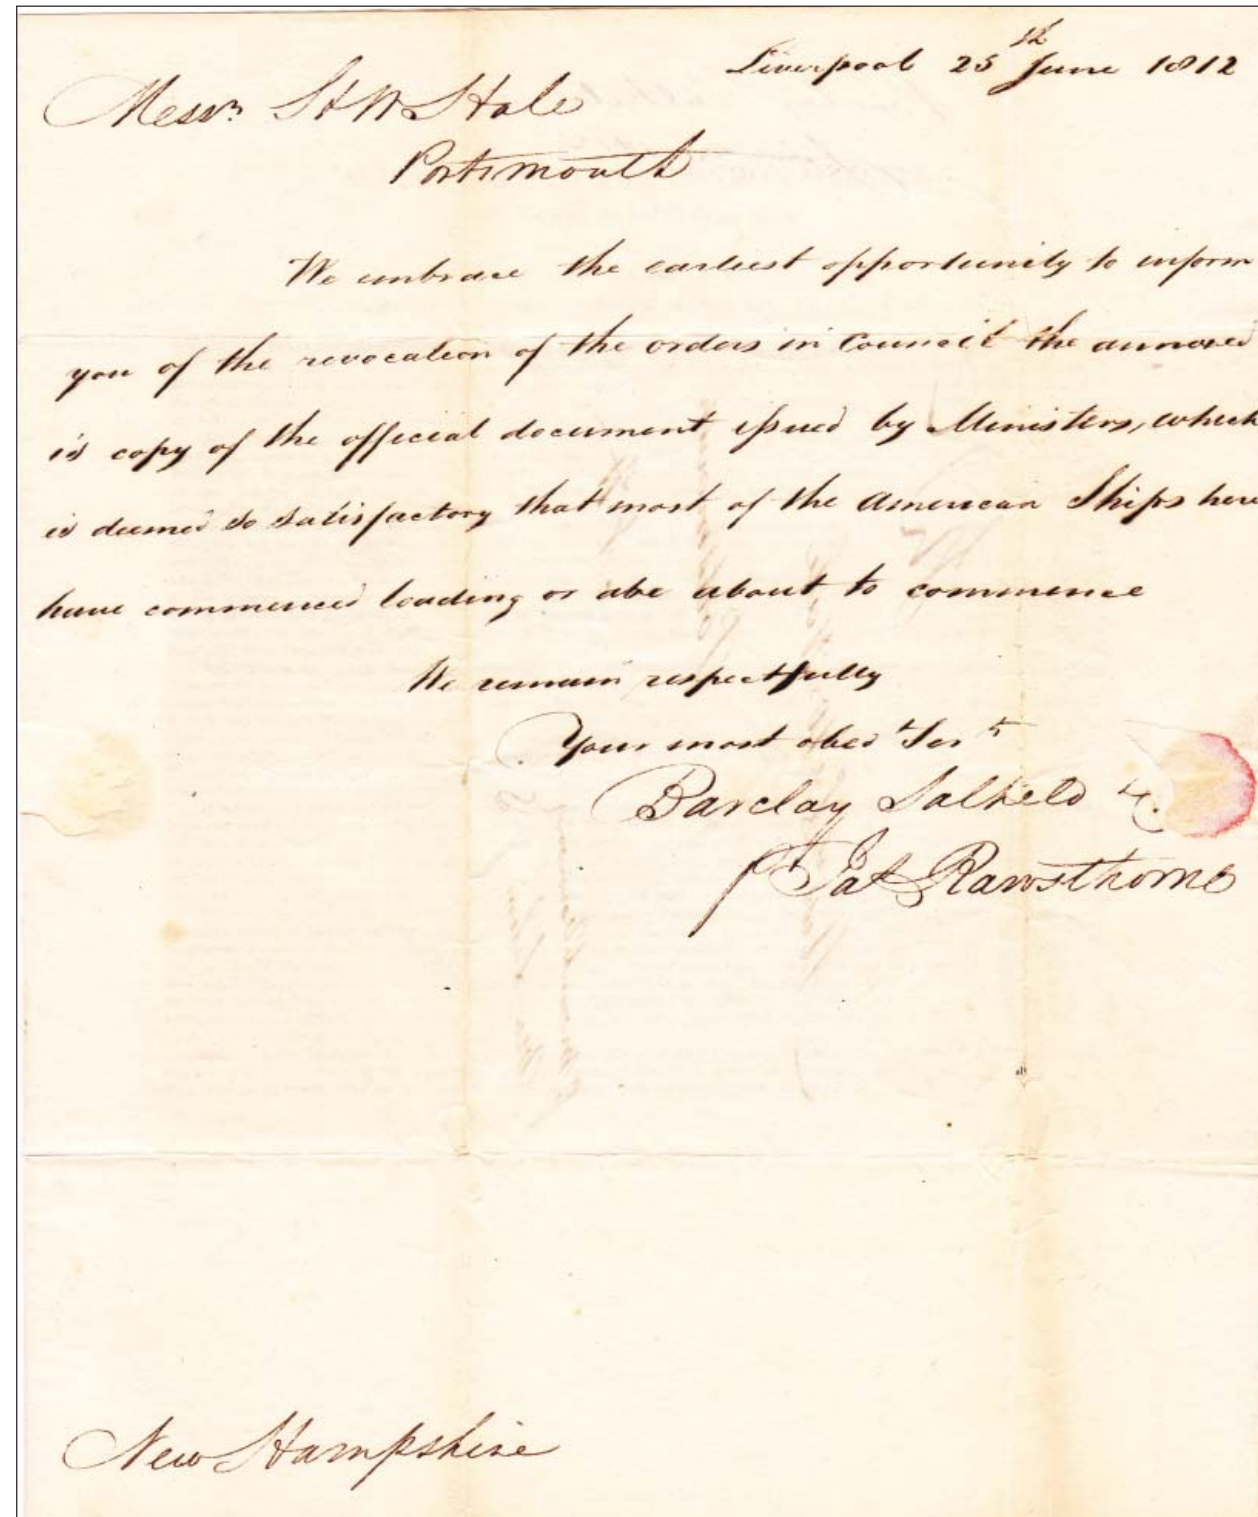 Liverpool 25th June 1812
Messrs S & W Hale
Portsmouth
We embrace the earliest opportunity to inform
you of the revocation of the orders in Council the annexed
is copy of the official document issued by Ministers, which
is deemed so satisfactory that most of the American Ships here
have commenced loading or are about to commence
We remain respectfully
Your most obed t Ser t
Barclay Salkeld &c.
p Jas Rawsthorne
New Hampshire